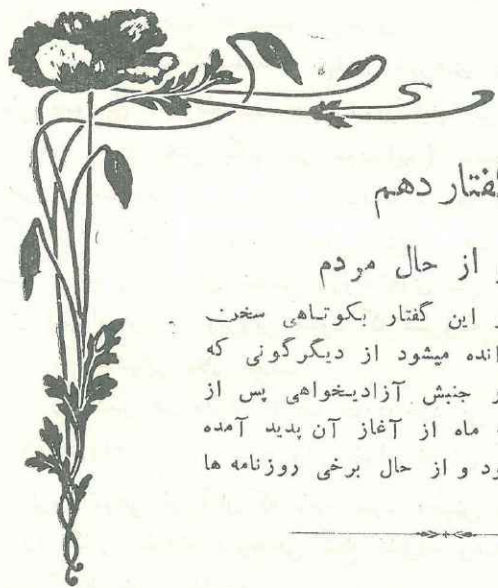 گفتار دهم
از حال مردم
این گفتار بکوتاهی سخن
میشود از دیگرگونی که
جنبش آزادیخواهی پس از
ماه از آغاز آن پدید آمده
و از حال برخی روزنامه ها